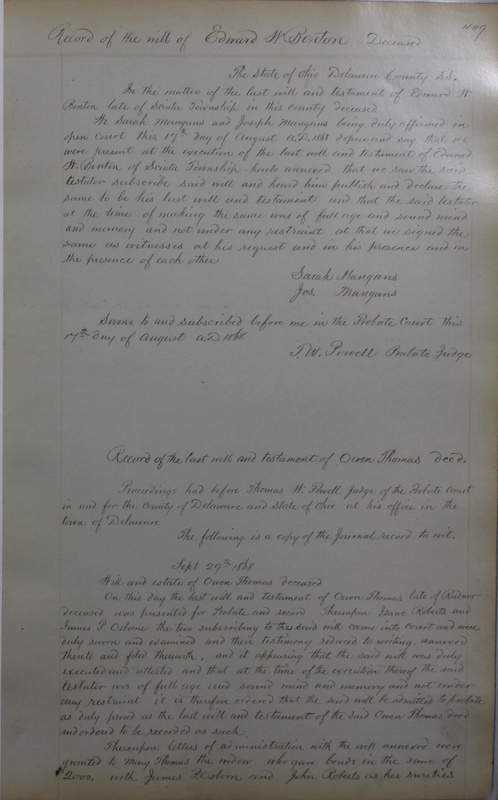 449
Record of the will of Edward W Benton Deceased
The State of Ohio Delaware County SS.
In the matter of the last will and testament of Edward W
Benton late of Scioto Township in this county deceased
We Sarah Mangans and Joseph Mangans being duly affirmed in
open court this 17th day of August A.D. 1868 depose and say that we
were present at the execution of the last will and testament of Edward
W. Benton of Scioto Township hereto annexed that we saw the said
testator subscribe said will and heard him publish and declare the
same to be his last will and testament and that the said testator
at the time of making the same was of full age and sound mind
and memory and not under any restraint at that we signed the
same as witnesses at his request and in his presence and in
the presence of each other
Sarah Mangans
Jos. Mangans
Sworn to and subscribed before me in the Probate Court this
17th day of August A.D. 1868
T. W. Powell Probate Judge
Record of the last will and testament of Owen Thomas decd.
Proceedings had before Thomas W. Powell Judge of the Probate Court
in and for the County of Delaware and State of Ohio at his office in the
town of Delaware
The following is a copy of the Journal record to wit.
Sept 29th 1868
Will and estate of Owen Thomas deceased
On this day the last will and testament of Owen Thomas late of Radnor
deceased was presented for Probate and record Thereupon Isaac Roberts and
James P. Osborne the two subscribing to the said will came into court and were
duly sworn and examined and their testimony reduced to writing annexed
thereto and filed therewith, and it appearing that the said will was duly
executed and attested and that at the time of the execution thereof the said
testator was of full age and sound mind and memory and not under
any restraint it is therefore ordered that the said will be admitted to probate
as duly proved as the last will and testament of the said Owen Thomas decd
and ordered to be recorded as such.
Thereupon letters of administration with the will annexed were
granted to Mary Thomas the widow who gave bonds in the sum of
$2000. with James P. Osborn and John Roberts as her sureties